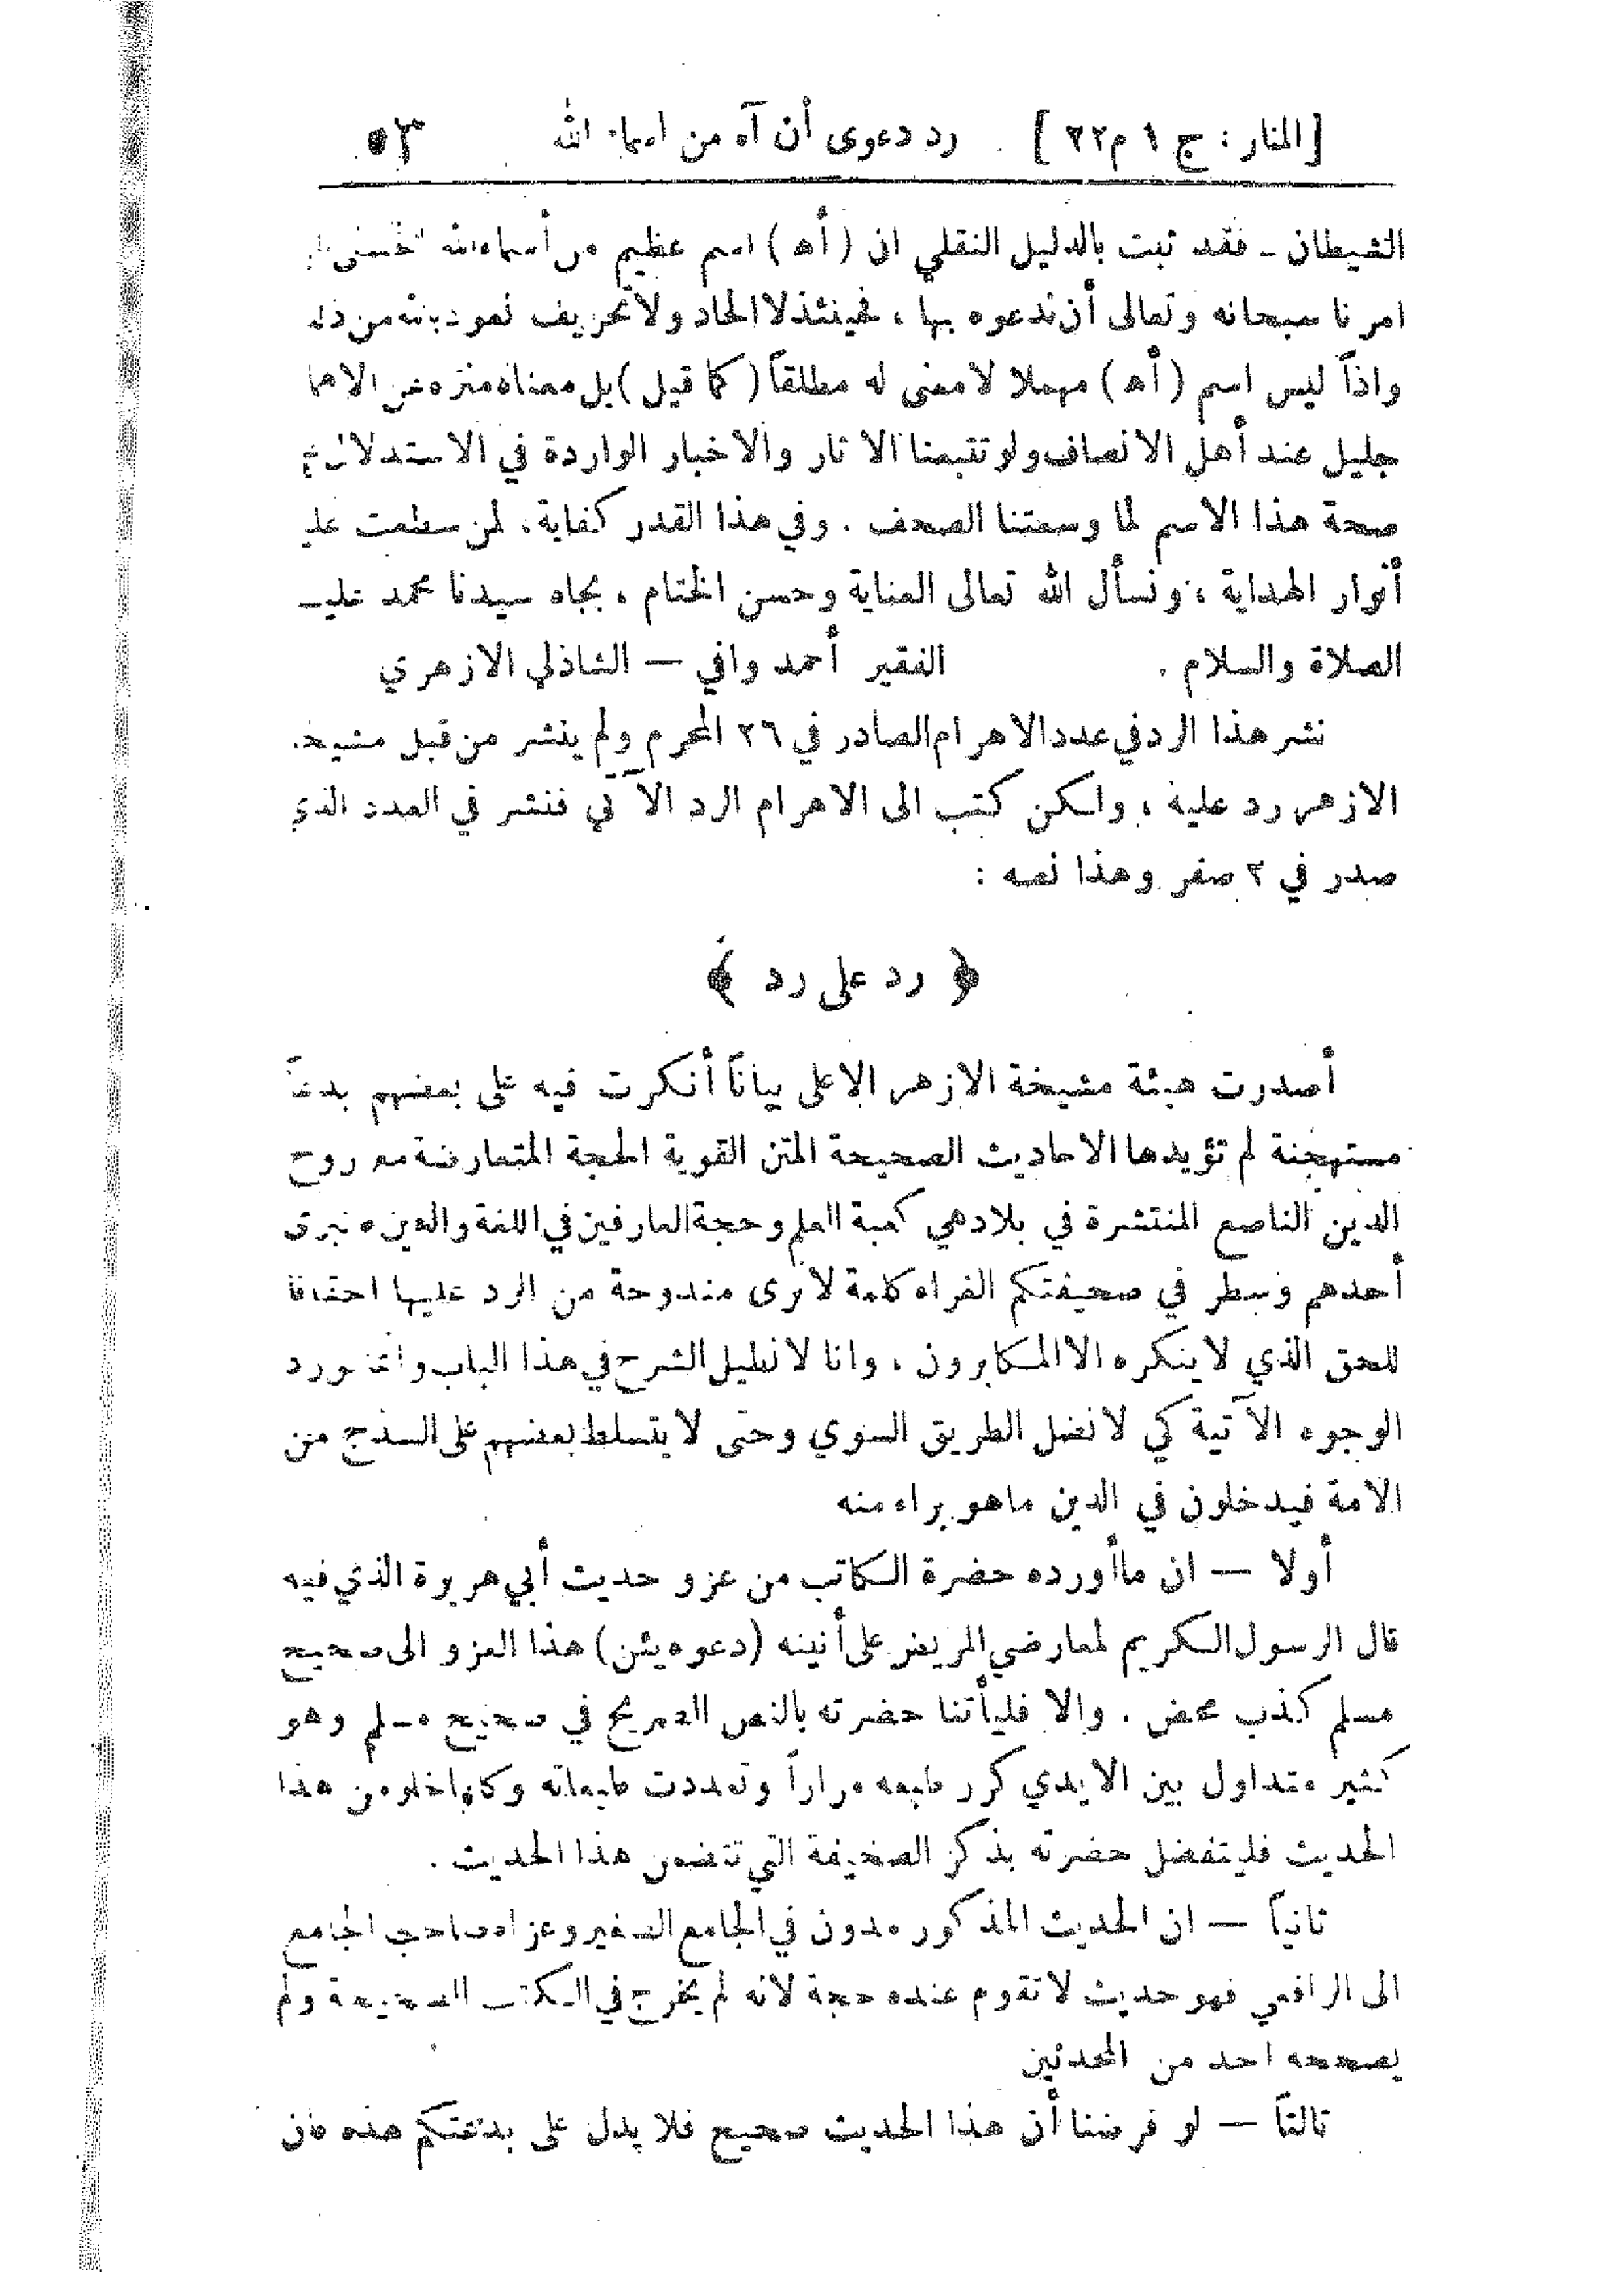 [المنار : ج ١ م ٢٢] رد دعوى أن آه من اسماء الله ٥٣
الشيطان ـ فقد ثبت بالدليل النقلي ان (أه) اسم عظيم من أسماء الله
امرنا سبحانه وتعالى أن ندعوه بها ، فحينئذ لا الحاد ولا تحريف نعوذ بالله من ذلك
واذاً ليس اسم (أه) مهملا لا معنى له مطلقاً (كما قيل) بل معناه منزه عن
جليل عند أهل الانصاف ولو تتبعنا الآثار والاخبار الواردة في الاستدلال
صحة هذا الاسم لما وسعتنا الصحف . وفي هذا القدر كفاية ، لمن سطعت
أنوار الهداية ، ونسأل الله تعالى العناية وحسن الختام ، بجاه سيدنا محمد عليه
الصلاة والسلام . الفقير أحمد وافي — الشاذلي الازهري
نشر هذا الرد في عدد الاهرام الصادر في ٢٦ المحرم ولم ينشر من قبل مشيخة
الازهر رد عليه ، ولكن كتب الى الاهرام الرد الآتي فنشر في العدد الذي
صدر في ٢ صفر وهذا نصه :
﴿ رد على رد ﴾
أصدرت هيئة مشيخة الازهر الاعلى بياناً أنكرت فيه على بعضهم بدعاً
مستهجنة لم تؤيدها الاحاديث الصحيحة المتن القوية الحجة المتعارضة مع روح
الدين الناصع المنتشرة في بلاد هي كعبة العلم وحجة العارفين في اللغة والدين فانبرى
أحدهم وسطر في صحيفتكم الغراء كلمة لا نرى مندوحة من الرد عليها احقاقا
للحق الذي لا ينكره الا المكابرون ، وانا لا نطيل الشرح في هذا الباب وانما نورد
الوجوه الآتية كي لا نضل الطريق السوي وحتى لا يتسلط بعضهم على السذج من
الامة فيدخلون في الدين ما هو براء منه
أولا — ان ما أورده حضرة الكاتب من عزو حديث أبي هريرة الذي فيه
قال الرسول الكريم لمعارضي المريض على أنينه (دعوه يئن) هذا العزو الى صحيح
مسلم كذب محض . والا فليأتنا حضرته بالنص الصريح في صحيح مسلم وهو
كثير متداول بين الايدي كرر طبعه مراراً وتعددت طبعاته وكلها خلو من هذا
الحديث فليتفضل حضرته بذكر الصحيفة التي تتضمن هذا الحديث .
ثانياً — ان الحديث المذكور مدون في الجامع الصغير وعزاه صاحب الجامع
الى الرافعي فهو حديث لا تقوم عنده حجة لانه لم يخرج في الكتب الصحيحة ولم
يصححه احد من المحدثين
ثالثاً — لو فرضنا أن هذا الحديث صحيح فلا يدل على بدعتكم هذه فان